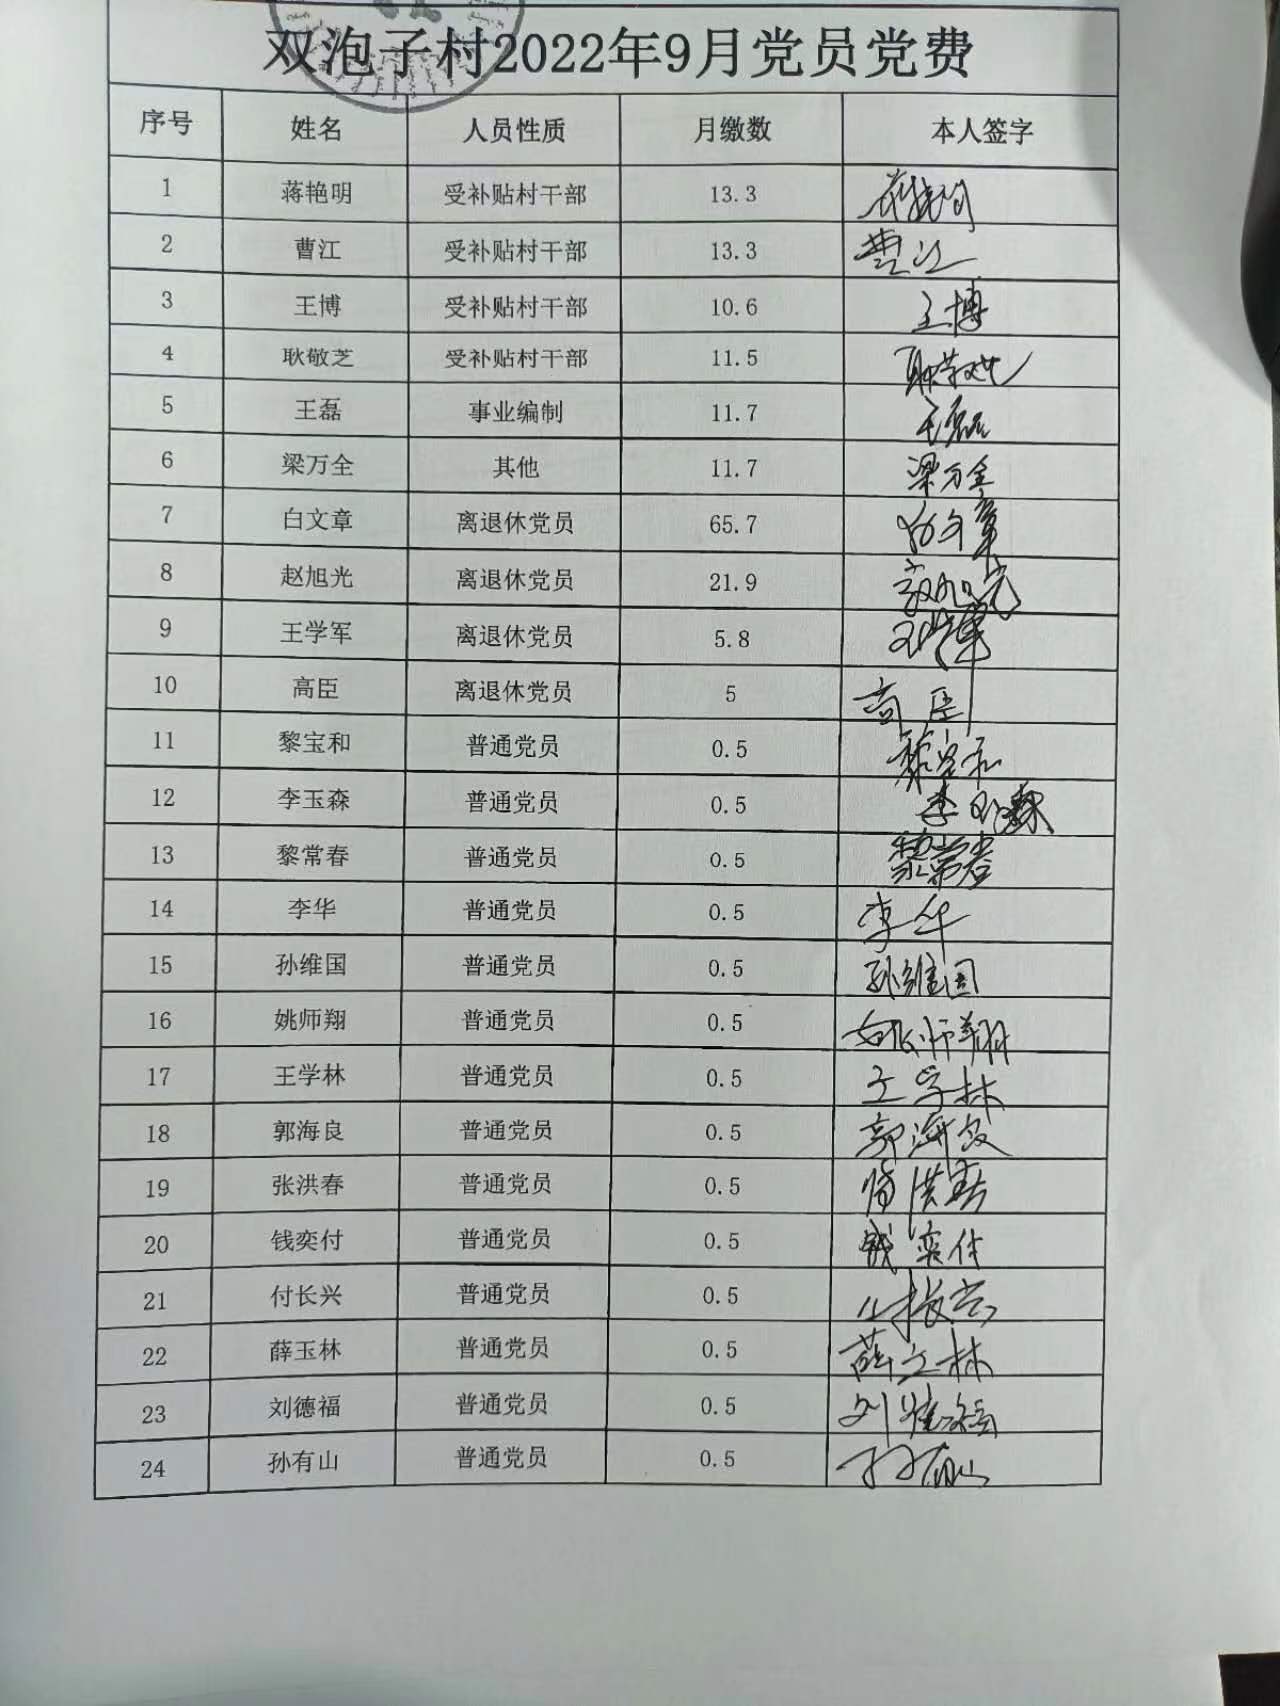 双泡子村2022年9月党员党费
序号 姓名 人员性质 月缴数 本人签字
1 蒋艳明 受补贴村干部 13.3 蒋艳明
2 曹江 受补贴村干部 13.3 曹江
3 王博 受补贴村干部 10.6 王博
4 耿敬芝 受补贴村干部 11.5
5 王磊 事业编制 11.7 王磊
6 梁万全 其他 11.7 梁万全
7 白文章 离退休党员 65.7 白文章
8 赵旭光 离退休党员 21.9 赵旭光
9 王学军 离退休党员 5.8 王学军
10 高臣 离退休党员 5 高臣
11 黎宝和 普通党员 0.5 黎宝和
12 李玉森 普通党员 0.5 李玉森
13 黎常春 普通党员 0.5 黎常春
14 李华 普通党员 0.5 李华
15 孙维国 普通党员 0.5 孙维国
16 姚师翔 普通党员 0.5 姚师翔
17 王学林 普通党员 0.5 王学林
18 郭海良 普通党员 0.5 郭海良
19 张洪春 普通党员 0.5 张洪春
20 钱奕付 普通党员 0.5 钱奕付
21 付长兴 普通党员 0.5
22 薛玉林 普通党员 0.5 薛玉林
23 刘德福 普通党员 0.5 刘德福
24 孙有山 普通党员 0.5 孙有山